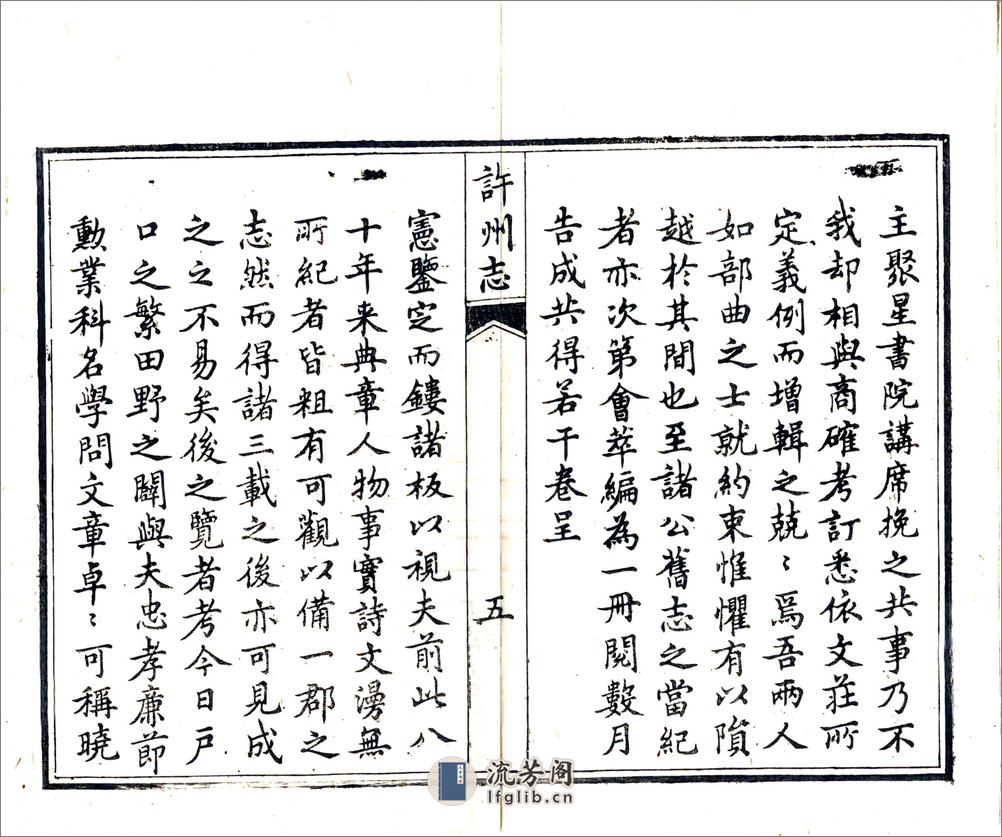 主聚星書院講席挽之共事乃不
我却相與商確考訂悉依文莊所
定義例而增輯之兢〻焉吾兩人
如部曲之士就約束惟懼有以隕
越於其間也至諸公舊志之當紀
者亦次第會萃編為一冊閱數月
告成共得若干卷呈
許州志
五
憲鑒定而鏤諸板以視夫前此八
十年来典章人物事實詩文漫無
所紀者皆粗有可觀以備一郡之
志然而得諸三載之後亦可見成
之之不易矣後之覽者考今日戸
口之繁田野之闢與夫忠孝廉節
勲業科名學問文章卓〻可稱曉
流芳阁
lfglib.cn